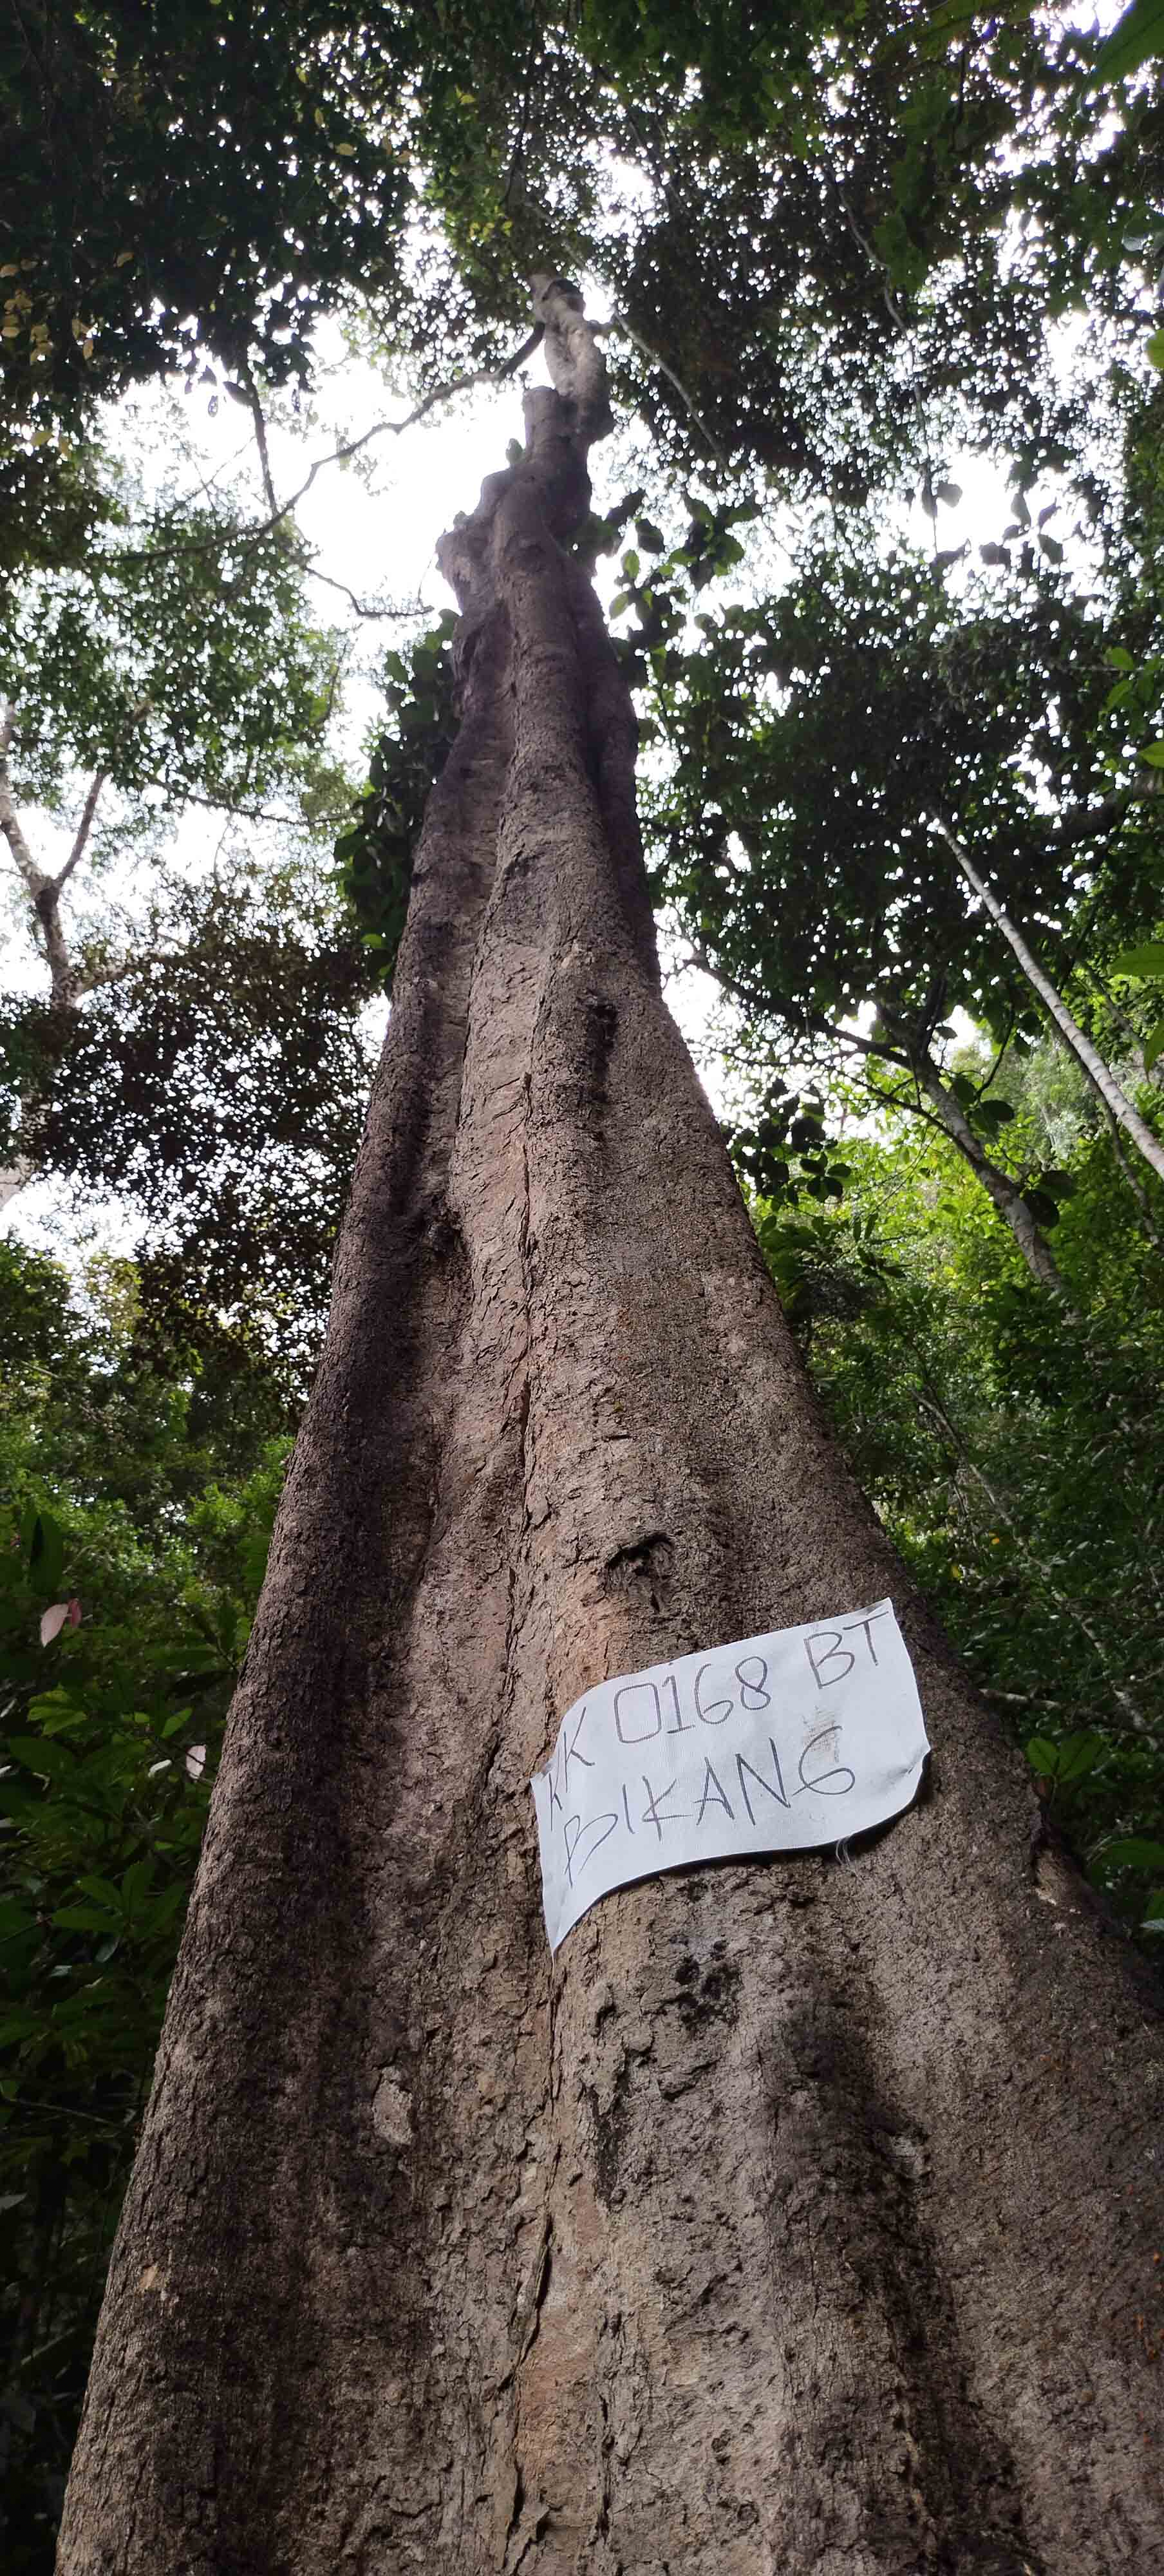 KK 0168 BT
BIKANG